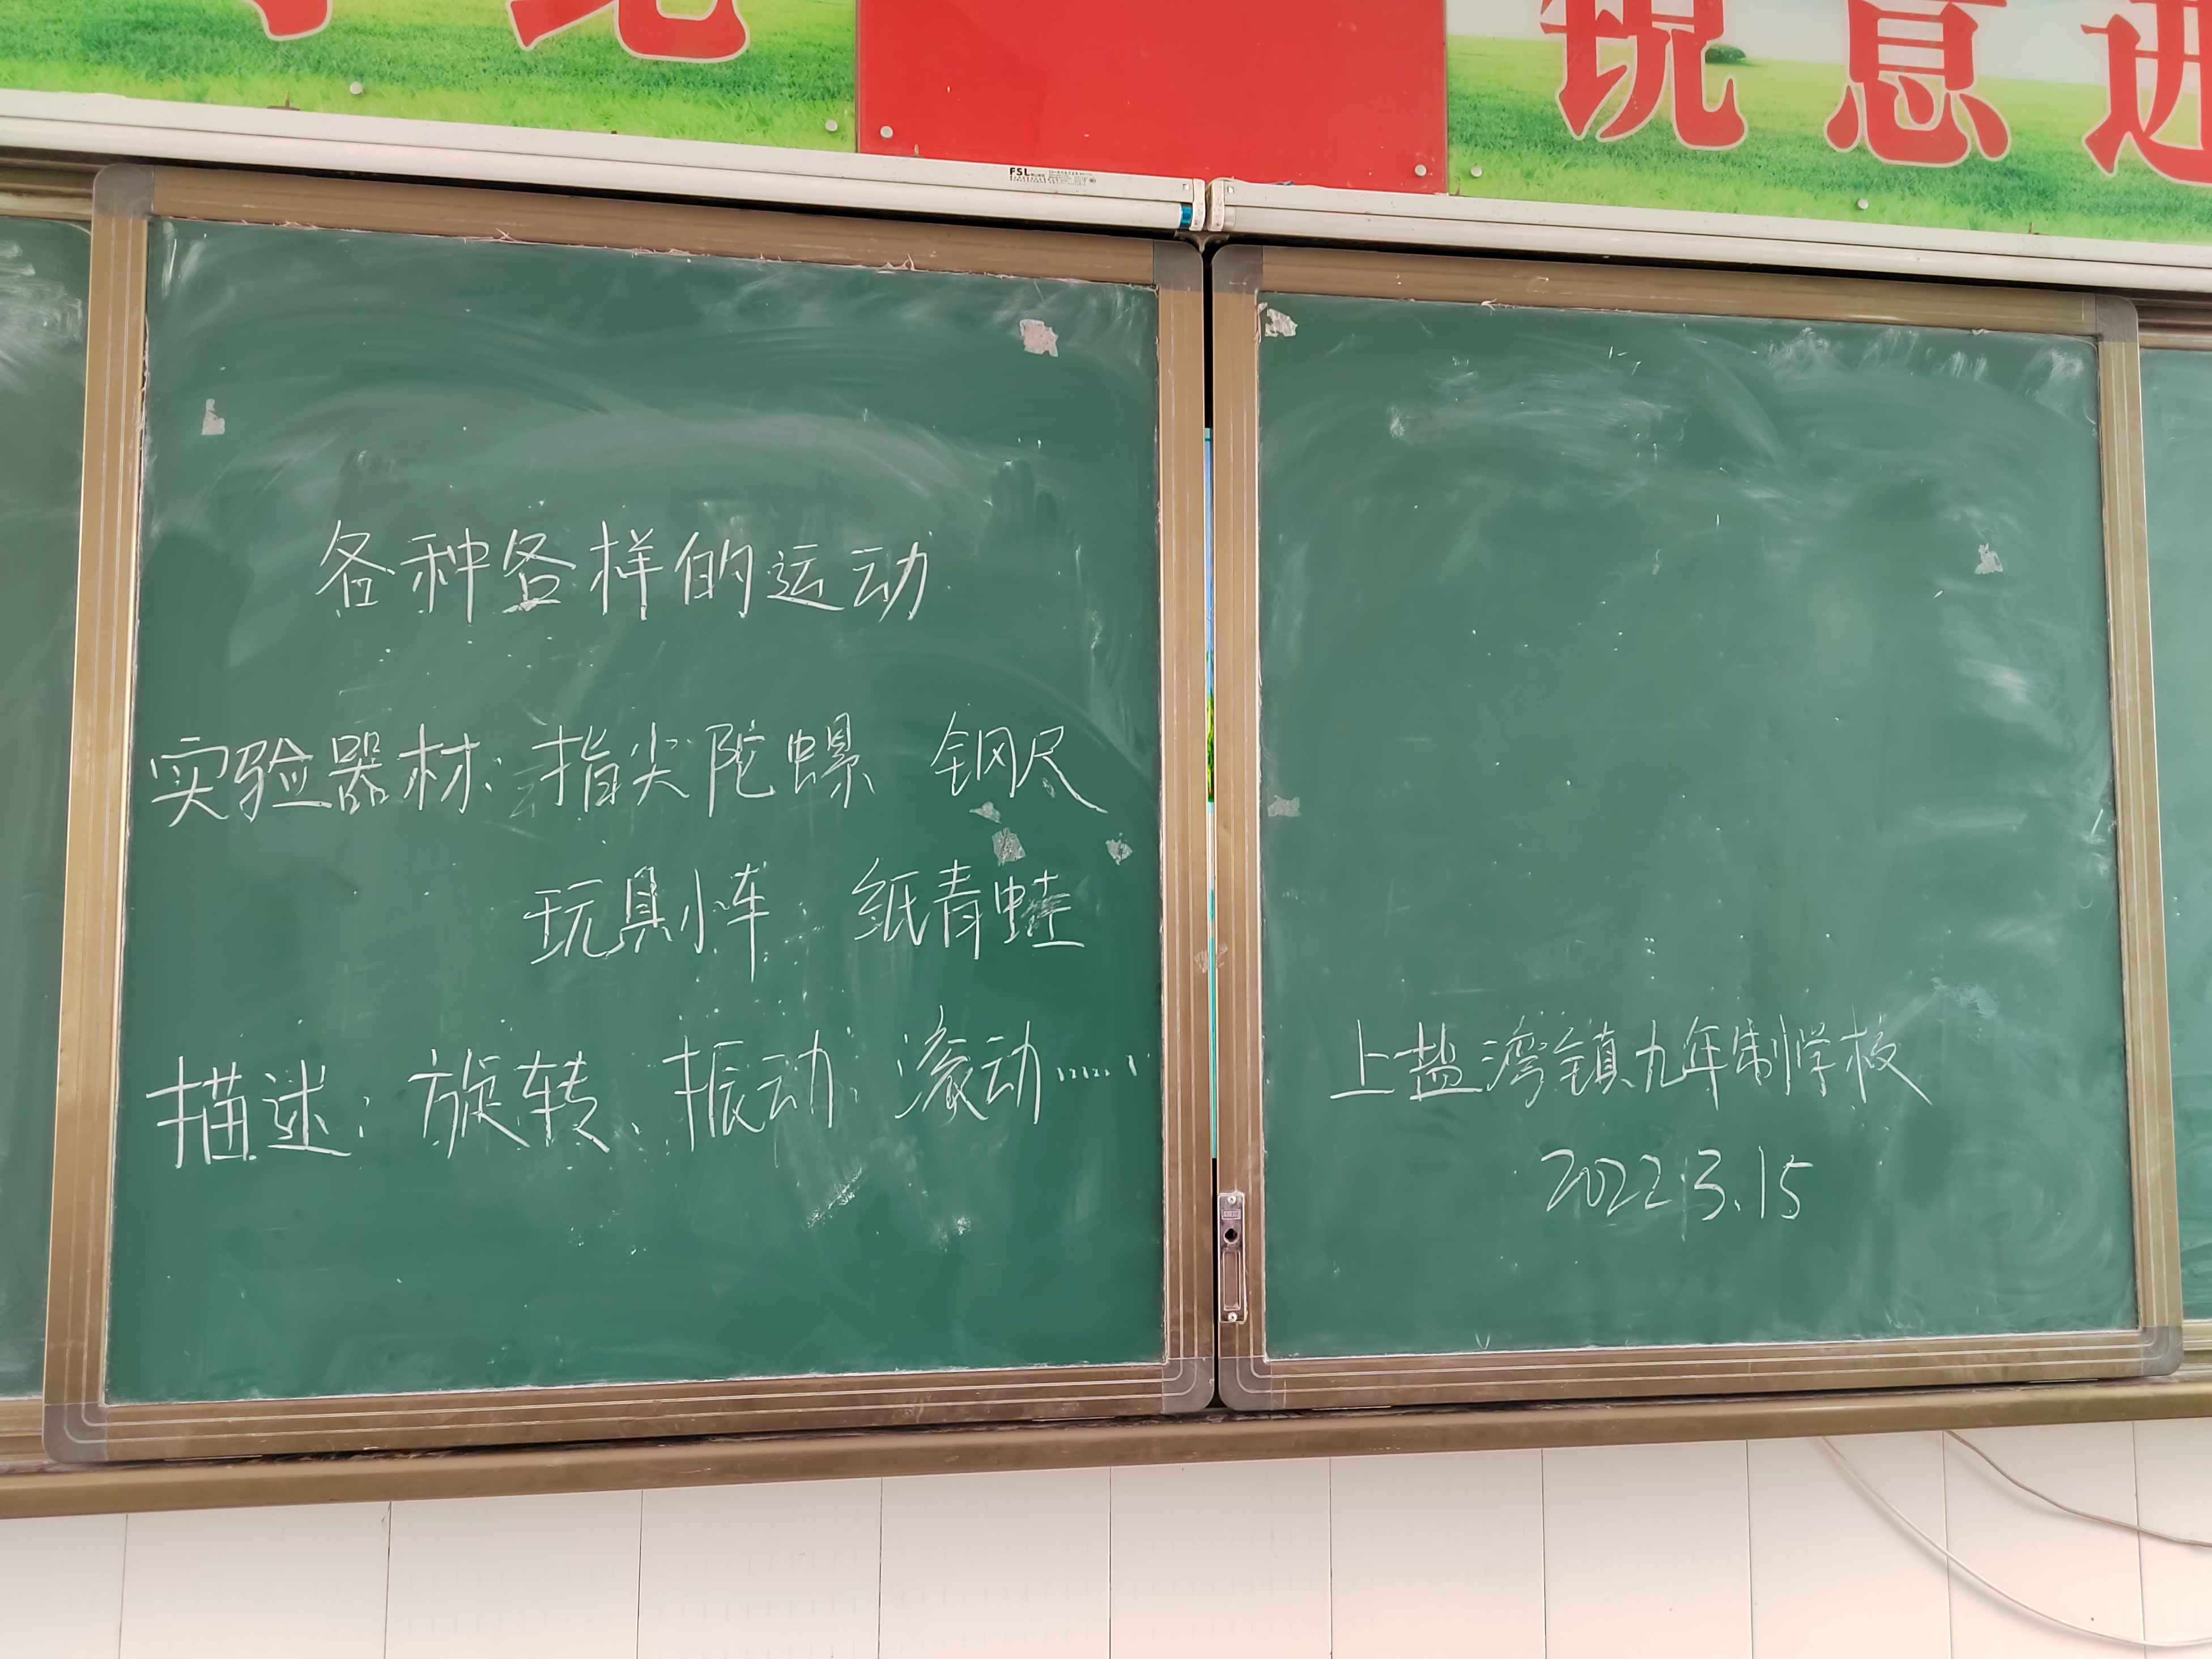 锐意进
FSL
各种各样的运动
实验器材: 指尖陀螺 钢尺
玩具小车 纸青蛙
描述: 旋转、振动、滚动……
上盐湾镇九年制学校
2022.3.15